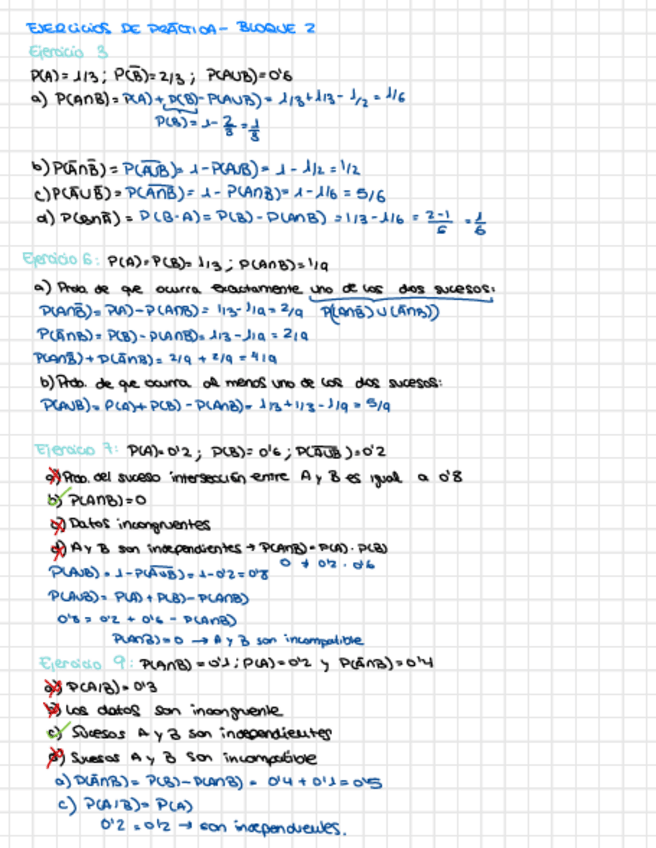 EJERCICIOS DE PRÁCTICA - BLOQUE 2
Ejercicio 3
P(A) = 1/3 ; P(B̅) = 2/3 ; P(A∪B) = 0'5
a) P(A∩B) = P(A) + P(B) - P(A∪B) = 1/3 + 1/3 - 1/2 = 1/6
P(B) = 1 - 2/3 = 1/3
b) P(A̅∩B̅) = P(A̅∪̅B̅) = 1 - P(A∪B) = 1 - 1/2 = 1/2
c) P(A̅∪B̅) = P(A̅∩̅B̅) = 1 - P(A∩B) = 1 - 1/6 = 5/6
d) P(B∩A̅) = P(B-A) = P(B) - P(A∩B) = 1/3 - 1/6 = 2-1/6 = 1/6
Ejercicio 6: P(A) = P(B) = 1/3 ; P(A∩B) = 1/9
a) Prob. de que ocurra exactamente uno de los dos sucesos:
P(A∩B̅) = P(A) - P(A∩B) = 1/3 - 1/9 = 2/9 P((A∩B̅)∪(A̅∩B))
P(A̅∩B) = P(B) - P(A∩B) = 1/3 - 1/9 = 2/9
P(A∩B̅) + P(A̅∩B) = 2/9 + 2/9 = 4/9
b) Prob. de que ocurra al menos uno de los dos sucesos:
P(A∪B) = P(A) + P(B) - P(A∩B) = 1/3 + 1/3 - 1/9 = 5/9
Ejercicio 7: P(A) = 0'2 ; P(B) = 0'6 ; P(A̅∪̅B̅) = 0'2
a) Prob. del suceso intersección entre A y B es igual a 0'8
b) P(A∩B) = 0
c) Datos incongruentes
d) A y B son independientes → P(A∩B) = P(A) · P(B)
0 ≠ 0'2 · 0'6
P(A∪B) = 1 - P(A̅∪̅B̅) = 1 - 0'2 = 0'8
P(A∪B) = P(A) + P(B) - P(A∩B)
0'8 = 0'2 + 0'6 - P(A∩B)
P(A∩B) = 0 → A y B son incompatible
Ejercicio 9: P(A∩B) = 0'1 ; P(A) = 0'2 y P(A̅∩B) = 0'4
a) P(A/B) = 0'3
b) Los datos son incongruente
c) Sucesos A y B son independientes
d) Sucesos A y B son incompatible
a) P(A̅∩B) = P(B) - P(A∩B) = 0'4 + 0'1 = 0'5
c) P(A/B) = P(A)
0'2 = 0'2 → son independientes.